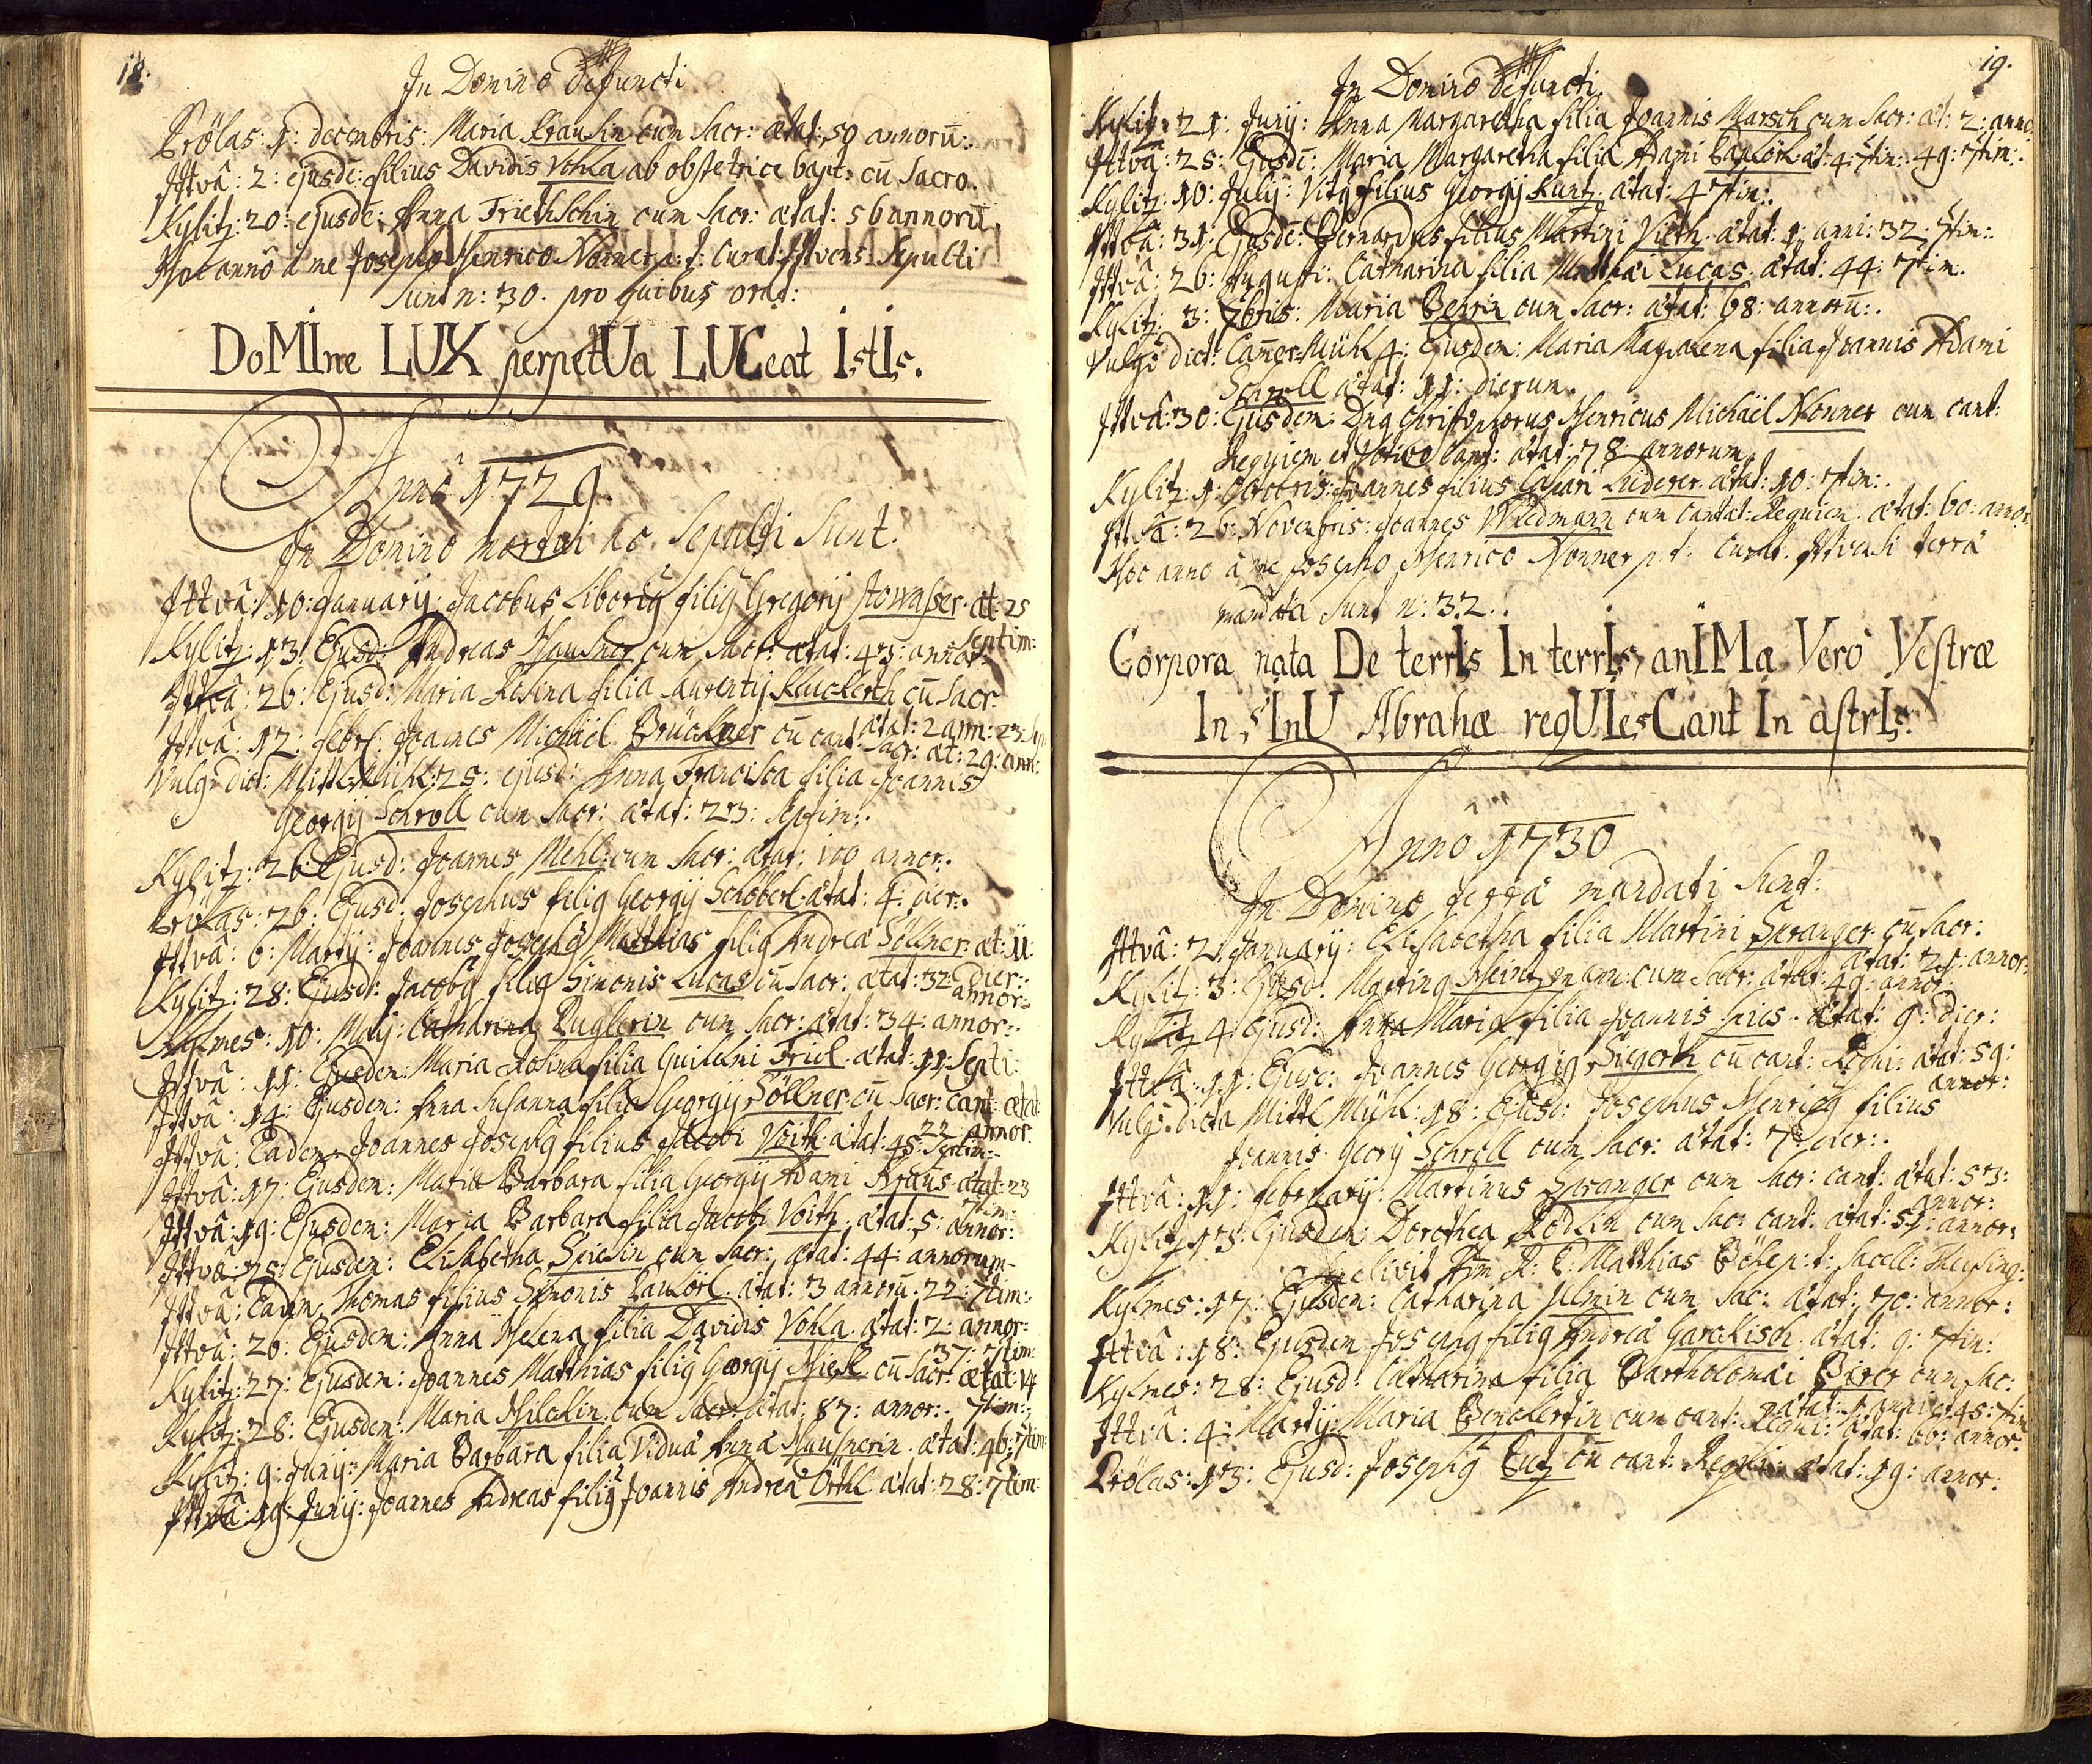 18.
In Domino defuncti
Prölas: 1: decembris: Maria Krausin cum Sacr: ætat: 50 annorū:
Ittvâ: 2: ejusdē: filius Davidis Vohla ab obstetrice bapt: cū Sacro.
Kylitz: 20: ejusdē: Anna Friethschin cum Sacr: ætat: 56 annorū.
Hoc annô â me Josepho Henrico Nonner p: t: Curat: Ittvens: Sepulti
Sunt n: 30. pro quibus orat:
DoMIne LUX perpetUa LUCeat IstIs.
Annô 1729.
In Domino mortui ac Sepulti Sunt.
Ittvâ: 10: January: Jacobus Liborig filig Gregorij Stowasser. æt: 25
Septim:
Kylitz: 13: Ejusd: Andreas Hausner cum Sacr: ætat: 43: annor:
Ittvâ: 26: Ejusd: Maria Rosina filia Laurentij cū Sacr.
ætat: 2 ann: 23:
Ittvâ: 12: febr: Joannes Michaël Brückner cū cant: Sacr: æt: 29: ann:
Vulgò dict: Mittl Mühl: 25: ejusd: Anna Francisca filia Joannis
Georgij Schroll cum Sacr: ætat: 23: Septim:.
Kylitz: 26: Ejusd: Joannes Mehl: cum Sacr: ætat: 100 annor:.
Prölas: 26: Ejusd: Josephus filig Georgij Schöberl. ætat: 4: dier:.
Ittvâ: 6: Martij: Joannes Josephg Matthias filig Andreæ Söllner. æt: 11.
dier:.
Kylitz: 28: Ejusd: Jacobg filig Simonis Lucas cū Sacr: ætat: 32:
annor:
Kylmes: 10: Maij: Catharina Puglerin cum Sacr: ætat: 34: annor:.
Ittvâ: 11: Ejusdem: Maria Rosina filia Guilielmi Friel. ætat: 11: Septi:
Ittvâ: 14: Ejusdem: Anna Susanna filia Georgij Söllner cū Sacr: Cant: ætat:
22 annor.
Ittvâ: Eadem: Joannes Josephg filius Jacobi Voith. ætat: 45: Septim:.
Ittvâ: 17: Ejusdem: Maria Barbara filia Georgij Adami Kraus. ætat: 23
7tim:
Ittvâ: 19: Ejusdem: Maria Barbara filia Jacobi Voith. ætat: 5: annor:
Ittvâ: 25: Ejusdem: Elisabetha Spiesin cum Sacr: ætat: 44: annorum.
Ittvâ: Eadem: Thomas filius Simonis Paulörl. ætat: 3 annorū. 22: 7tim:.
Ittvâ: 26: Ejusdem: Anna Helena filia Davidis Vohla. ætat: 2: annor:
37: 7tim:
Kylitz: 27: Ejusdem: Joannes Matthias filig Georgij Hiekl. cū Sacr: ætat: 14
7tim:
Kylitz: 28: Ejusdem: Maria Hilckin. cum Sacr: ætat: 87: annor:.
Kylitz: 9: Junij: Maria Barbara filia Viduæ Annæ Hausnerin. ætat: 46: 7tim:
Ittvâ: 19: Junij: Joannes Andreas filig Joannis Andreæ Örthl. ætat: 28: 7tim:
19.
In Domino defuncti.
Kylitz: 21: Junij: Anna Margaretha filia Joannis Marsch cum Sacr: æt: 2: anno:
Ittvâ: 25: Ejusdē: Maria Margaretha filia Adami Paulörl. æt: 49: 7tim:.
Kylitz: 10: Julij: Vitg filius Georgij Kuntz. ætat: 4 7tim:.
Ittvâ: 31: Ejusdē: Bernardus filius Martini Vieth. ætat: 1: anni: 32: 7tim:.
Ittvâ: 26: Augusti: Catharina filia Matthæi Lucas. ætat: 44: 7tim:
Kylitz: 3: 7bris: Maria Beerin cum Sacr: ætat: 68: annorū:.
Vulgò dict: Cam̄er-Mühl 4: Ejusdem: Maria Magdalena filia Joannis Adami
Schroll ætat: 11: dierum.
Ittvâ: 30: Ejusdem: Dng Christophorus Henricus Michaël Nonner cum cant:
Requiem et cant: ætat: 78 annorum.
Kylitz: 1: Octobris: Joannes filius Caspari Lüderer. ætat: 10: 7tim:.
Ittvâ: 26: Novembris: Joannes Wildmann cum Cantat: Requiem. ætat: 60: annor:
Hoc anno â me Josepho Henrico Nonner p. t: Curat. Ittvensi terræ
mandata Sunt n: 32.
Corpora nata De terrIs In terrIs, anIMæ Verò Vestræ
In sInU Abrahæ reqUIesCant In astrIs.
Annô 1730
In Domino terræ mandati Sunt:
Ittvâ: 2. January: Elisabetha filia Martini Spranger cū Sacr:
ætat: 21: annor:
Kylitz: 3: Ejusd: Marting Heintzmann: cum Sacr: ætat: 49: annor:
Kylitz 4: Ejusd: Anna Maria filia Joannis Spies. ætat: 9: dier:
Ittvâ: 11: Ejusd: Joannes Georgig Siegerth cū cant: Requi: ætat: 59:
annor:
Vulgò dicta Mittl Mühl: 18: Ejusd: Josephus Henricg filius
Joannis Georij Schroll cum Sacr: ætat: 7: dier:.
Ittvâ: 11: february: Martinus Spranger cum Sacr: cant: ætat: 53:
annor:
Kylitz 13: Ejusdem: Dorothea Rödlin cum Sac: cant: ætat: 51: annor:
Sepelivit Adm R: D: Matthias Böhm p: t: Sacell: Theysing:
Kylmes: 17: Ejusdem: Catharina Ulmin cum Sac: ætat: 70: annor:
Ittvâ: 18: Ejusdem Josephg filig Andreæ Garckisch. ætat: 9: 7tim:
Kylmes: 28: Ejusd: Catharina filia Bartholomæi Bierer cum Sac:
ætat: 1 anni et 45: 7tim
Ittvâ: 4: Martij: Maria Benckertin cum cant: Requi: ætat: 66: annor:
Prölas: 13: Ejusd: Josephg Lutz cū cant: Requi: ætat: 19: annor: